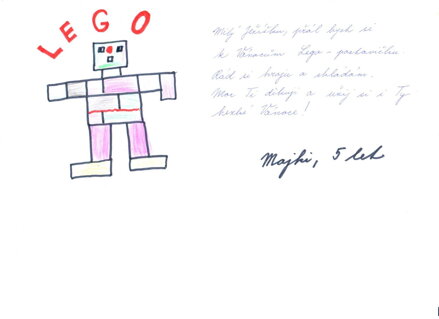 LEGO
Milý Ježíšku, přál bych si
k Vánocům Lego - postavičku.
Rád si hraju a skládám.
Moc Ti děkuji a užij si i Ty
hezké Vánoce!
Majki, 5 let